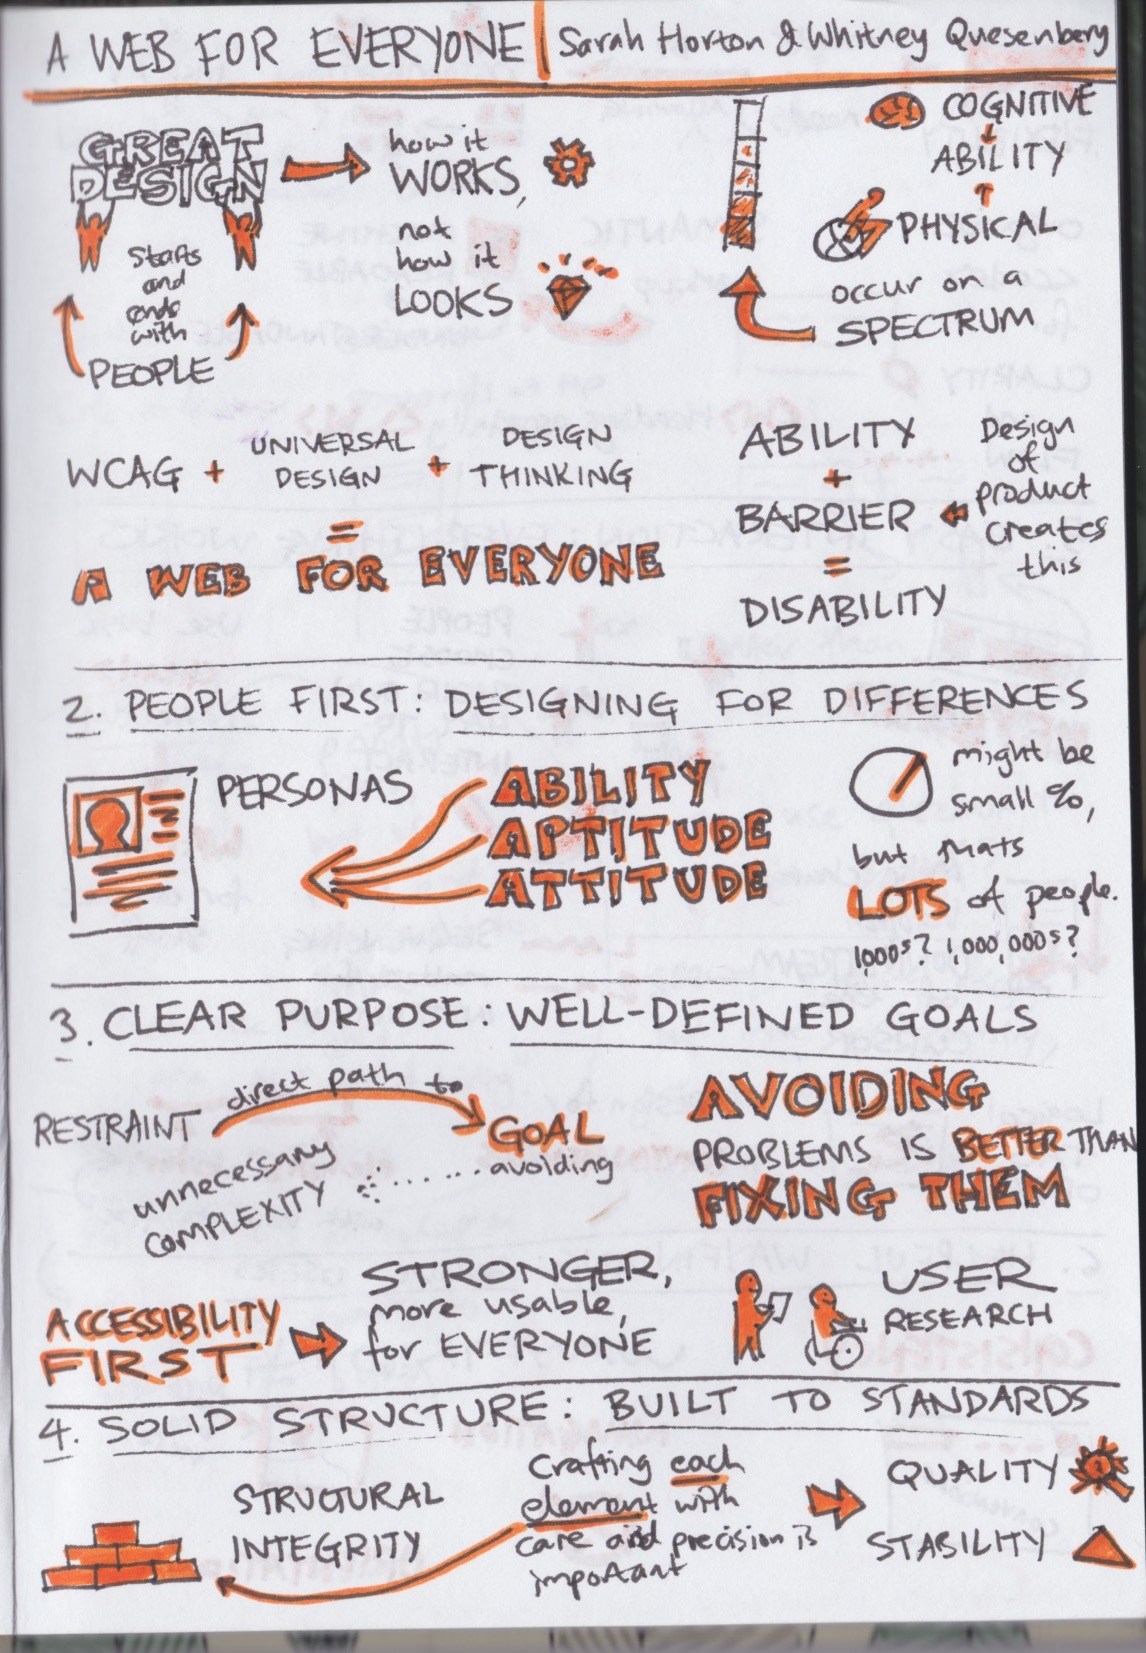 A WEB FOR EVERYONE | Sarah Horton & Whitney Quesenbery
GREAT
DESIGN
starts
and
ends
with
PEOPLE
how it
WORKS,
not
how it
LOOKS
COGNITIVE
ABILITY
PHYSICAL
occur on a
SPECTRUM
WCAG + UNIVERSAL DESIGN + DESIGN THINKING
=
A WEB FOR EVERYONE
ABILITY
+
BARRIER
=
DISABILITY
Design
of
product
creates
this
2. PEOPLE FIRST: DESIGNING FOR DIFFERENCES
PERSONAS
ABILITY
APTITUDE
ATTITUDE
might be
small %,
but thats
LOTS of people.
1,000s? 1,000,000s?
3. CLEAR PURPOSE: WELL-DEFINED GOALS
RESTRAINT
direct path to
GOAL
avoiding
unnecessary
COMPLEXITY
AVOIDING
PROBLEMS IS BETTER THAN
FIXING THEM
ACCESSIBILITY
FIRST
STRONGER,
more usable,
for EVERYONE
USER
RESEARCH
4. SOLID STRUCTURE: BUILT TO STANDARDS
STRUCTURAL
INTEGRITY
Crafting each
element with
care and precision is
important
QUALITY
STABILITY